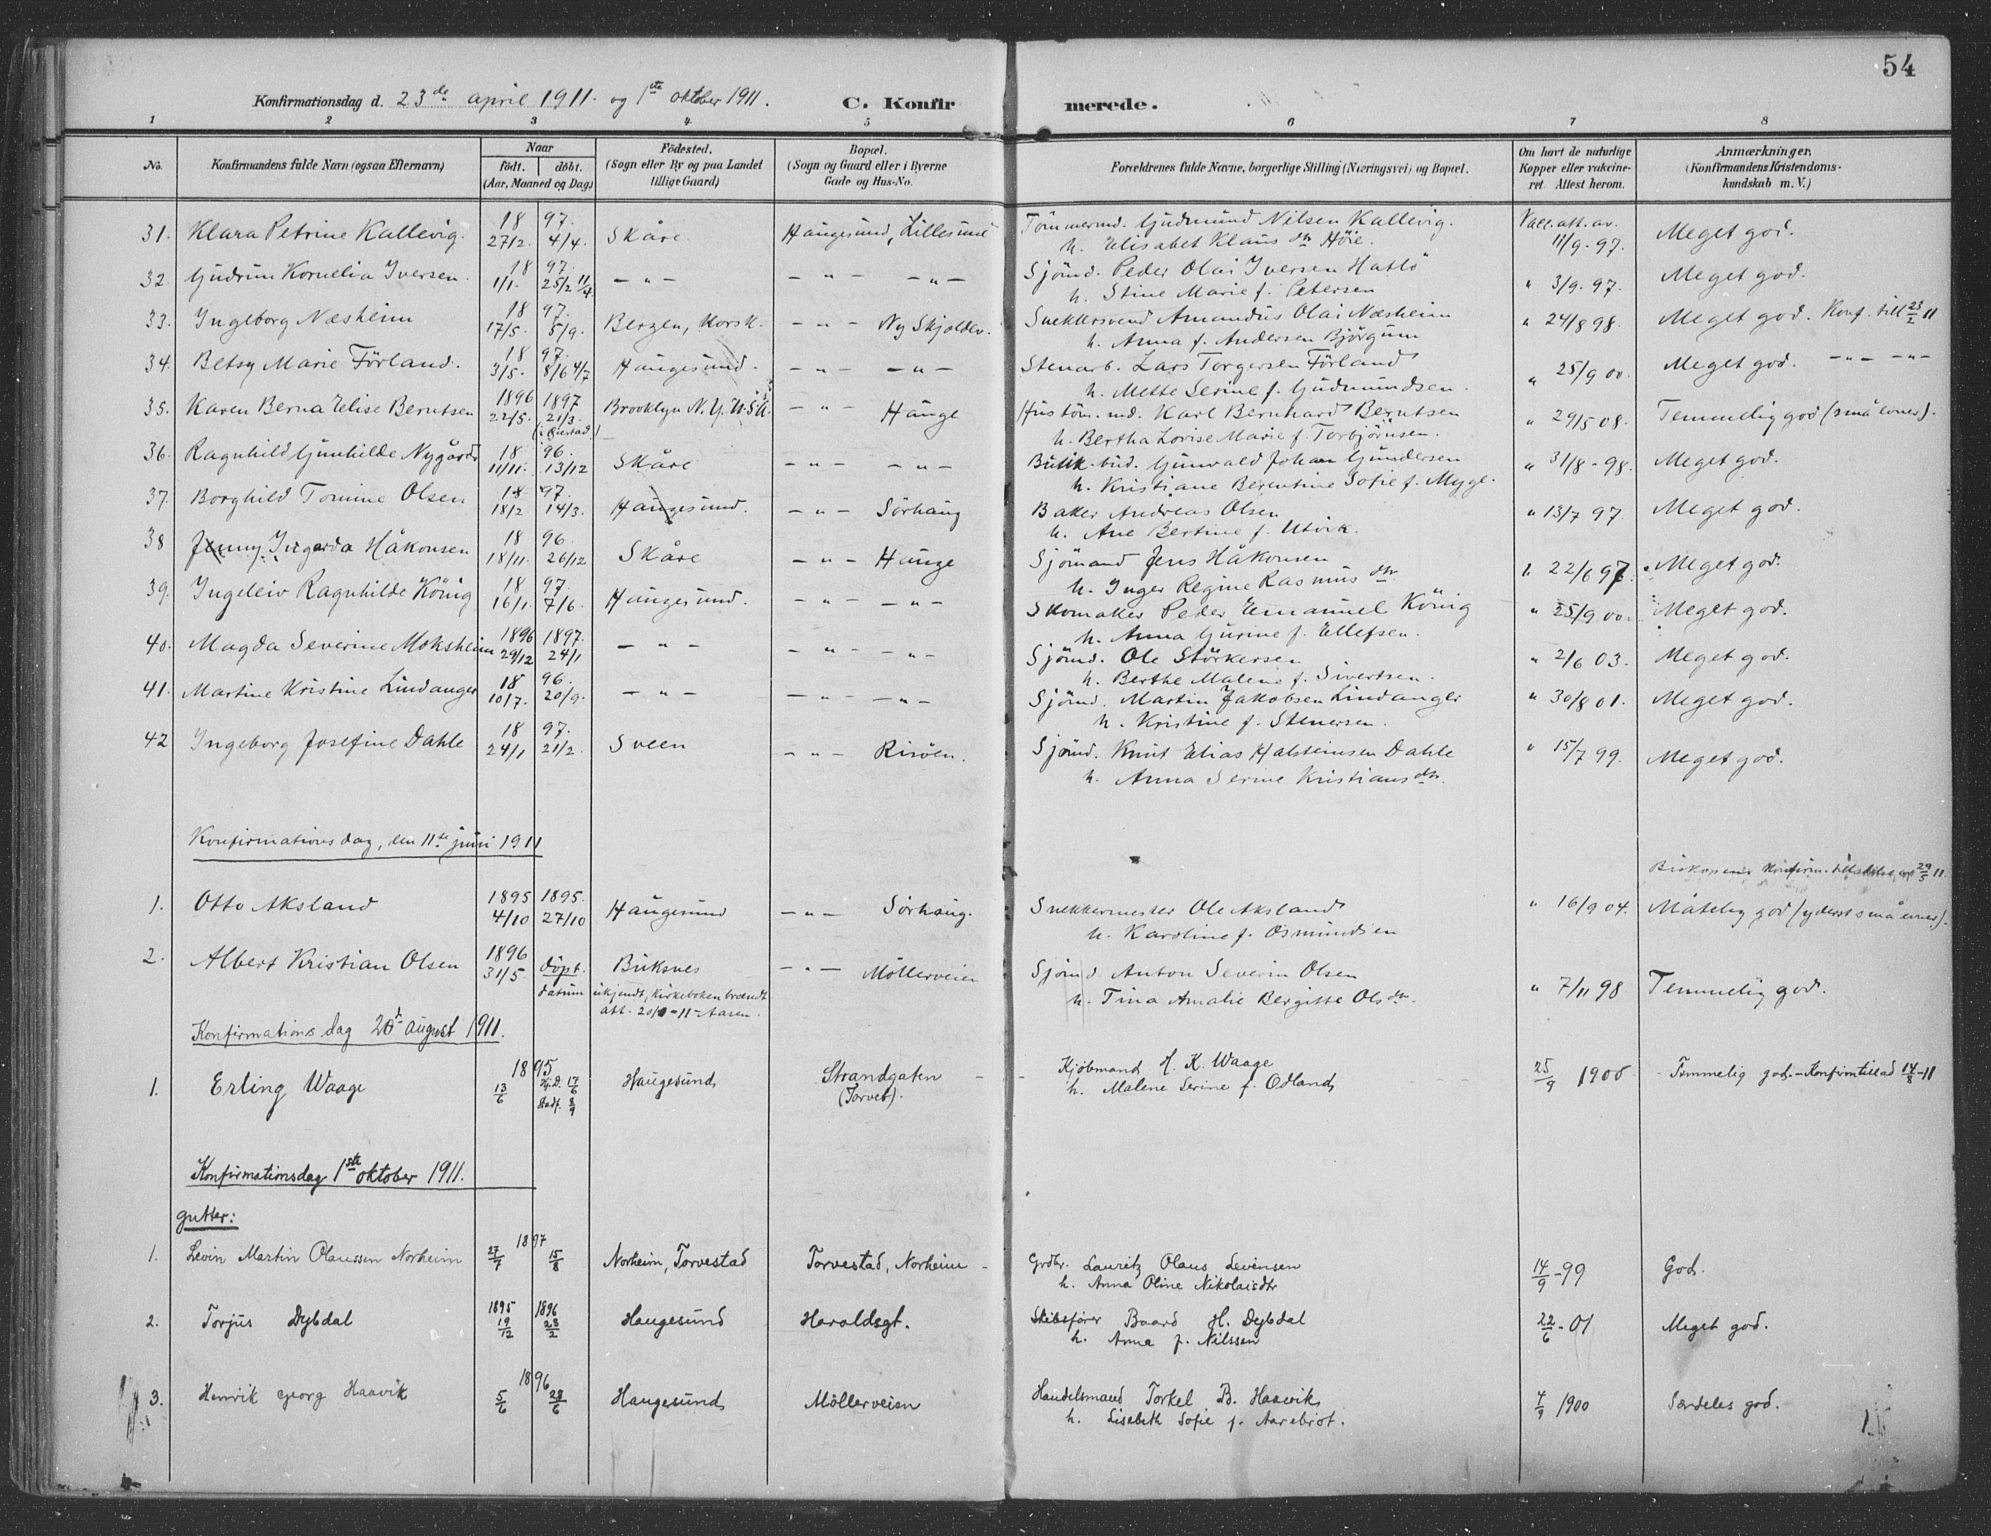 54
Konfirmationsdag d. 23de april 1911. og 1ste oktober 1911. C. Konfirmerede.
1 2 3 4 5 6 7 8
No. Konfirmandens fulde Navn (ogsaa Efternavn) Naar født. døbt. (Aar, Maaned og Dag) Fødested. (Sogn eller By og paa Landet tillige Gaard) Bopæl. (Sogn og Gaard eller i Byerne Gade og Hus-No. Forældrenes fulde Navne, borgerlige Stilling (Næringsvei) og Bopæl. Om havt de naturlige Kopper eller vakcineret. Attest herom. Anmærkninger. (Konfirmandens Kristendomskundskab m. V.)
31. Klara Petrine Kallevig. 18 97. 27/2. 4/4. Skåre. Haugesund, Lillesund Tømmermd. Gudmund Nilsen Kallevig. Vacc. att. av 11/9-97. Meget god.
h. Elisabet Klausdtr Høie.
32. Gudrun Kornelia Iversen. 18 97. 1/1. 25/2 11/4 — " — — " — — " — Sjømd. Peder Olai Iversen Hatlø " 3/9-97. Meget god.
h. Stine Marie f. Petersen
33. Ingeborg Næsheim 18 97. 17/5. 5/9. Bergen, Korsk. — " — Ny Skjoldev. Snekkersvend Amandus Olai Næsheim " 24/8 98. Meget god. Konf. till 23/2 11
h. Anna f. Andersen Bjørgum
34. Betsy Marie Førland. 18 97. 3/5. 8/6 4/7 Haugesund. — " — — " — Stenarb. Lars Torgersen Førland " 25/9 00. Meget god. — " — — " —
h. Mette Serine f. Gudmundsen.
35. Karen Berna Elise Berntsen 1896 1897 22/5. 21/3. Brooklyn N.Y. U.S.A. — " — Hauge Hustøm. md. Karl Bernhard Berntsen " 29/5 08. Temmelig god (små evner).
h. Bertha Lovise Marie f. Torbjørnsen.
36. Ragnhild Gunhilde Nygård 18 96. 11/11. 13/12 Skåre — " — — " — Butik-bud. Gunvald Johan Gundersen " 31/8-98. Meget god.
h. Kristiane Berentine Sofie f. Myge.
37. Borghild Tomine Olsen 18 97. 18/2 14/3. Haugesund. — " — Sørhaug Baker Andreas Olsen " 13/7 97 Meget god.
h. Ane Bertine f. Utvik.
38 Jenny Ingarda Håkonsen 18 96. 18/11. 26/12 Skåre — " — Hauge Sjømand Jens Håkonsen " 22/6 97. Meget god.
h. Inger Regine Rasmusdtr.
39. Ingeleiv Ragnhilde König 18 97. 16/1. 7/6. Haugesund. — " — — " — Skomaker Peder Emanuel König " 25/9 00. Meget god.
h. Anna Gurine f. Ellefsen.
40. Magda Severine Moksheim 1896 1897. 29/12 24/1 — " — — " — — " — Sjømd. Ole Størkersen " 2/6 03. Meget god.
h. Berthe Malene f. Sivertsen.
41. Martine Kristine Lindanger 18 96. 10/7. 20/9. — " — — " — — " — Sjømd. Martin Jakobsen Lindanger " 30/8 01. Meget god.
h. Kristine f. Stenersen.
42 Ingeborg Josefine Dahle 18 97. 24/1 21/2. Sveen — " — Risøen. Sjømd. Knut Elias Halsteinsen Dahle " 15/7 99. Meget god.
h. Anna Serine Kristiansdtr.
Konfirmationsdag, den 11te juni 1911
Biskopens konfirm. tilladelse, av 29/5 11.
1. Otto Aksland 1895 1895. 4/10 27/10 Haugesund — " — Sørhaug. Snekkermester Ole Aksland " 16/9 04. Måtelig god (yderst små evner).
h. Karoline f. Osmundsen
2. Albert Kristian Olsen 1896 31/5. døpt. Buksnes — " — Møllerveien Sjømd Anton Severin Olsen " 7/11 98 Temmelig god.
datum ukjendt, kirkeboken brændt h. Tina Amalie Bergitte Olsdtr.
att. 20/ -11-Aasen.
Konfirmationsdag 20d august 1911.
1. Erling Waage 1895 13/6 Hj.D. 17/6 Stadf. 8/9 Haugesund Strandgaten (Torvet). Kjøbmand H. K. Waage 25/9 1900 Temmelig god. - Konfirmtillad 14/8-11
h. Malene Serine f. Odland
Konfirmationsdag 1ste oktober 1911.
gutter:
1. Levin Martin Olaussen Norheim 1897 27/7 15/8 Norheim, Torvestad Torvestad, Norheim Grdbr. Lauritz Olaus Levensen 14/9-99 God.
h. Anna Oline Nikolaisdtr
2. Torjus Dybdal 1895 1896 19/12 23/2 Haugesund Haraldsgt. Skibsfører Baard H. Dybdal 22/6-01 Meget god.
h. Anna f. Nilssen
3. Henrik Georg Haavik 1896 5/6 28/6 Haugesund Møllerveien Handelsmand Torkel B. Haavik 4/9 1900 Særdeles god.
h. Lisebeth Sofie f. Aarebrot.